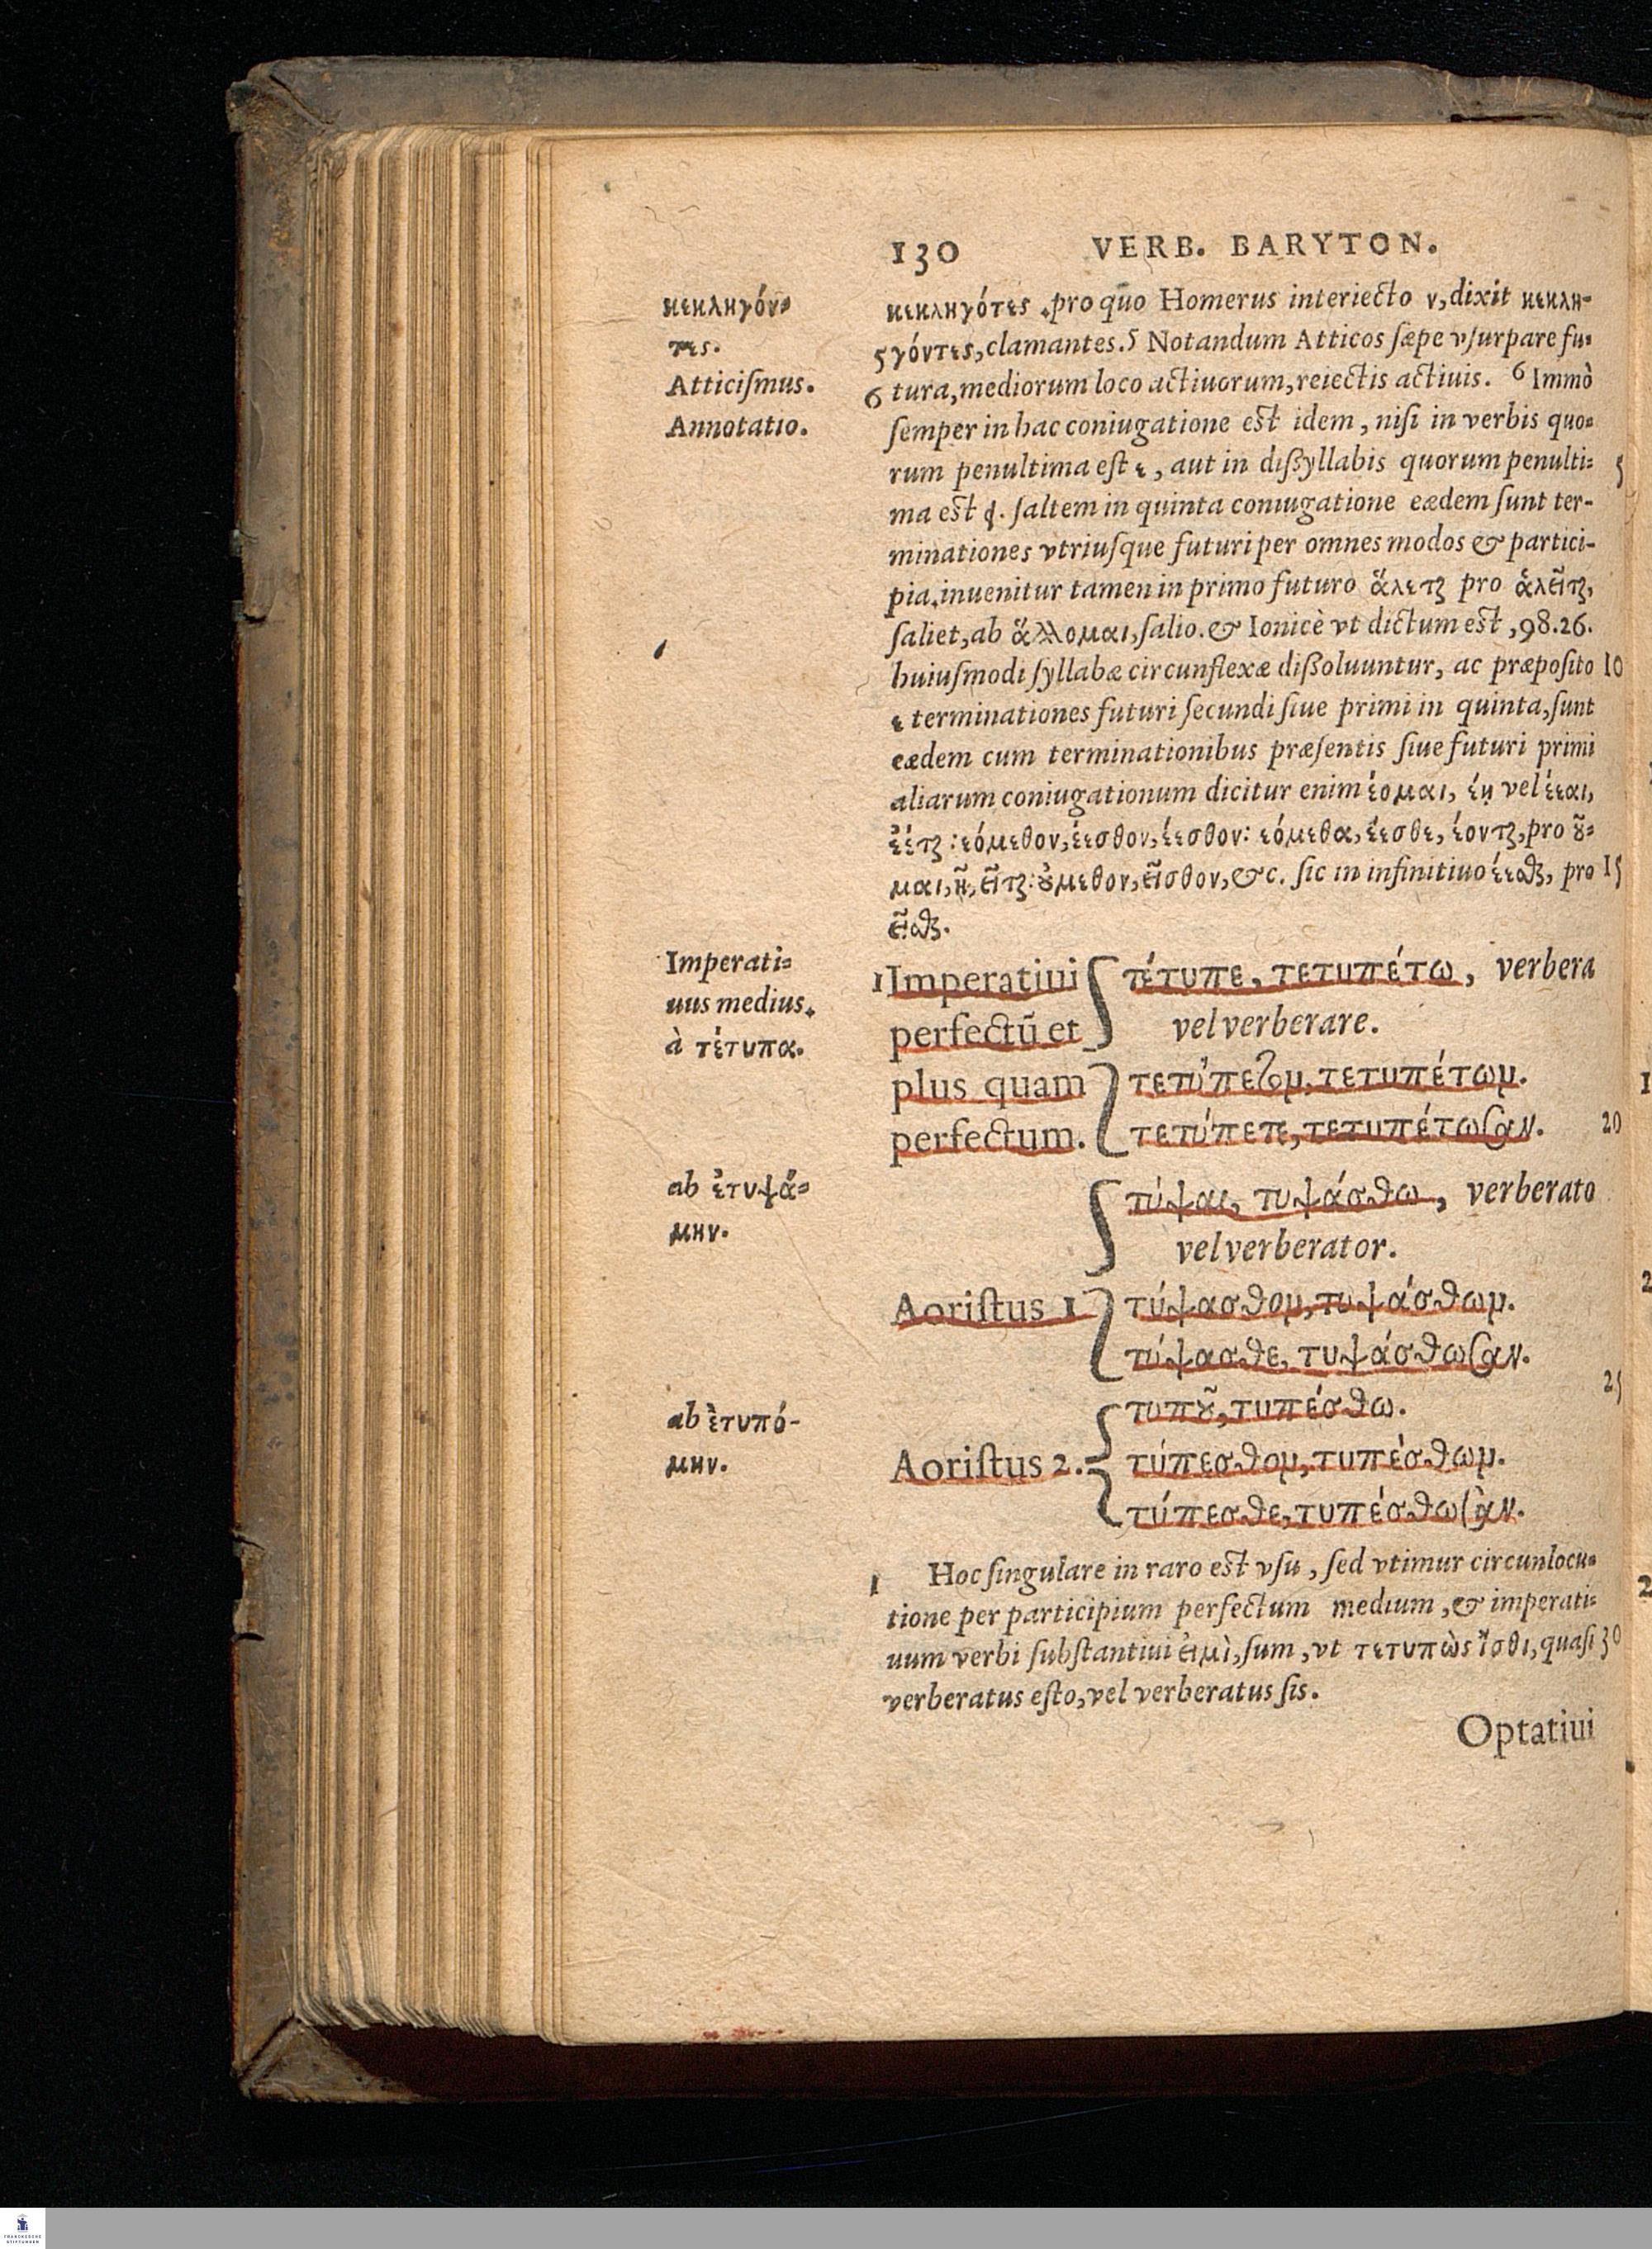 130 VERB. BARYTON.
κεκληγόν-
τες.
Atticiſmus.
Annotatio.
κεκληγότες .pro quo Homerus interiecto ν, dixit κεκλη-
5 γόντες, clamantes. 5 Notandum Atticos ſæpe vſurpare fu-
6 tura, mediorum loco actiuorum, reiectis actiuis. 6 Immò
ſemper in hac coniugatione est idem, niſi in verbis quo-
rum penultima eſt ε, aut in dißyllabis quorum penulti- 5
ma est ει. ſaltem in quinta coniugatione eædem ſunt ter-
minationes vtriuſque futuri per omnes modos & partici-
pia. inuenitur tamen in primo futuro ἅλεται pro ἁλεῖται,
ſaliet, ab ἅλλομαι, ſalio. & Ionicè vt dictum est, 98.26.
huiuſmodi ſyllabæ circunflexæ dißoluuntur, ac præpoſito 10
ε terminationes futuri ſecundi ſiue primi in quinta, ſunt
eædem cum terminationibus præſentis ſiue futuri primi
aliarum coniugationum dicitur enim έομαι, έῃ vel έεαι,
έέται : εόμεθον, έεσθον, έεσθον: εόμεθα, έεσθε, έονται, pro οῦ-
μαι, ῇ, εῖται: ούμεθον, εῖσθον, &c. ſic in infinitiuo έεσθαι, pro 15
εῖσθαι.
Imperati-
uus medius.
à τέτυπα.
1 Imperatiui
perfectū et
plus quam
perfectum.
τέτυπε, τετυπέτω, verbera
vel verberare.
τετύπετον, τετυπέτων.
τετύπετε, τετυπέτωσαν. 20
ab ἐτυψά-
μην.
Aoriſtus 1
τύψαι, τυψάσθω, verberato
vel verberator.
τύψασθον, τυψάσθων.
τύψασθε, τυψάσθωσαν.
25
ab ἐτυπό-
μην.
Aoriſtus 2.
τυποῦ, τυπέσθω.
τύπεσθον, τυπέσθων.
τύπεσθε, τυπέσθωσαν.
1 Hoc ſingulare in raro est vſu, ſed vtimur circunlocu-
tione per participium perfectum medium, & imperati-
uum verbi ſubſtantiui εἰμὶ, ſum, vt τετυπὼς ἴσθι, quaſi 30
verberatus eſto, vel verberatus ſis.
Optatiui
FRANCKESCHE
STIFTUNGEN